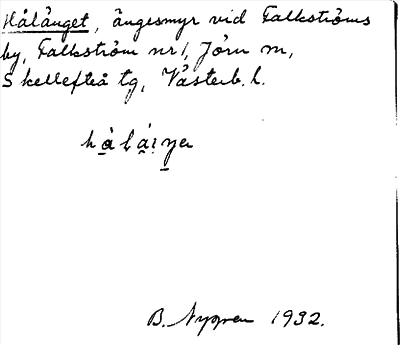 Hålånget, ängesmyr vid Falkströms
by, Falkström nr 1, Jörn sn,
Skellefteå tg, Västerb. l.
B. Nygren 1932.